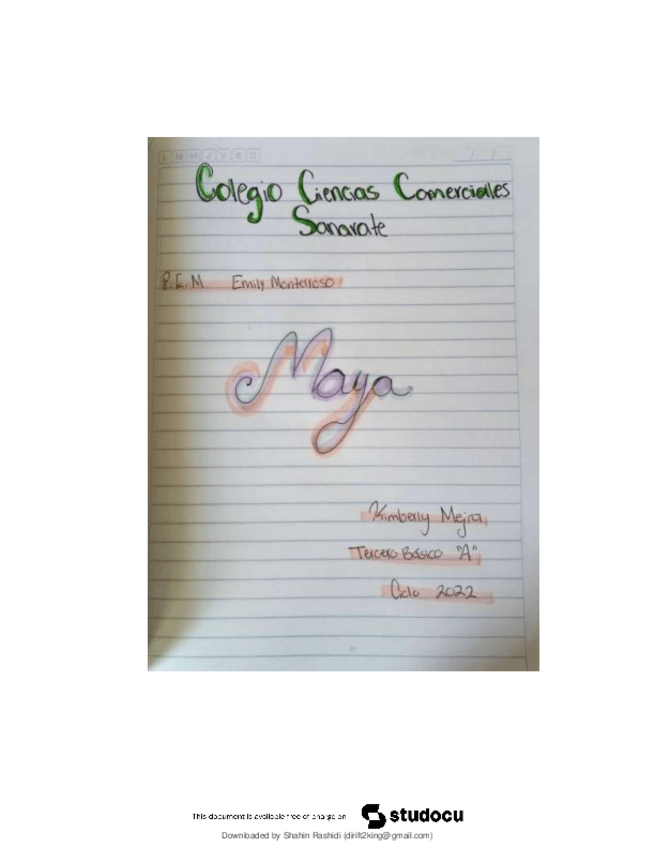 L M M J V S D
Colegio Ciencias Comerciales
Sanarate
P.E.M Emily Monterroso
Maya
Kimberly Mejia
Tercero Básico "A"
Ciclo 2022
This document is available free of charge on studocu
Downloaded by Shahin Rashidi (dirilt2king@gmail.com)